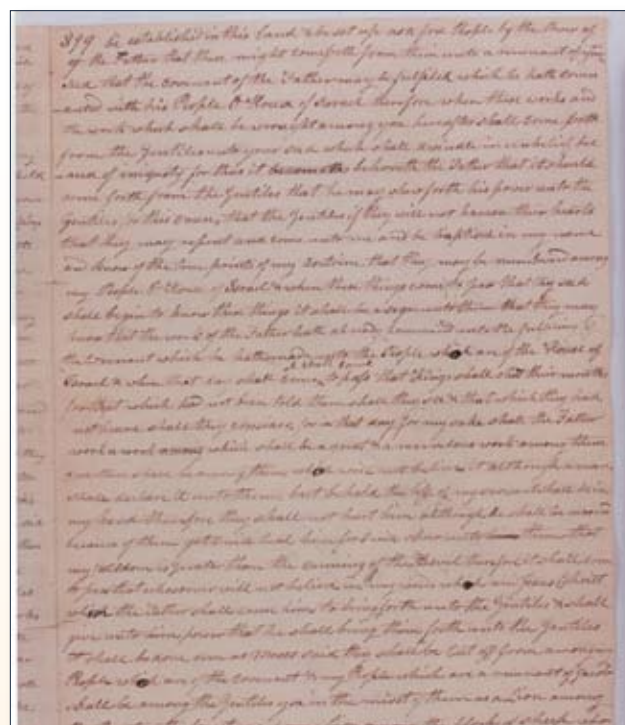 399 be established in this Land & be set up as a free People by the Power of
of the Father that these might come forth from them unto a remnant of your
seed that the covenant of the Father may be fulfiled which he hath coven
anted with his People O House of Israel therefore when these works and
the work which shall be wrought among you hereafter shall come forth
from the Gentiles unto your seed which shall dwindle in unbelief be
cause of iniquity for thus it behoveth the Father that it should
come forth from the Gentiles that he may shew forth his power unto the
Gentiles for this cause, that the Gentiles if they will not harden their hearts
that they may repent and come unto me and be baptised in my name
and know of the true points of my doctrine that they may be numbered among
my People O House of Israel & when these things come to pass that thy seed
shall begin to know these things it shall be a sign unto them that they may
know that the work of the Father hath already commenced unto the fulfiling of
the covenant which he hath made unto the People which are of the House of
Israel & when that day shall come it shall come to pass that Kings shall shut their mouths
for that which had not been told them shall they see & that which they had
not heard shall they consider for in that day for my sake shall the Father
work a work which shall be a great & a marvelous work among them
and there shall be among them who will not believe it although a man
shall declare it unto them but behold the life of my servant shall be in
my hand therefore they shall not hurt him although he shall be marred
because of them yet I will heal him for I will shew unto them that
my wisdom is greater than the cunning of the Devil therefore it shall come
to pass that whosoever will not believe in my words which am Jesus Christ
which the Father shall cause him to bring forth unto the Gentiles & shall
give unto him power that he shall bring them forth unto the Gentiles
it shall be done even as Moses said they shall be cut off from among my
People which are of the covenant & my People which are a remnant of Jacob
shall be among the Gentiles yea in the midst of them as a Lion among